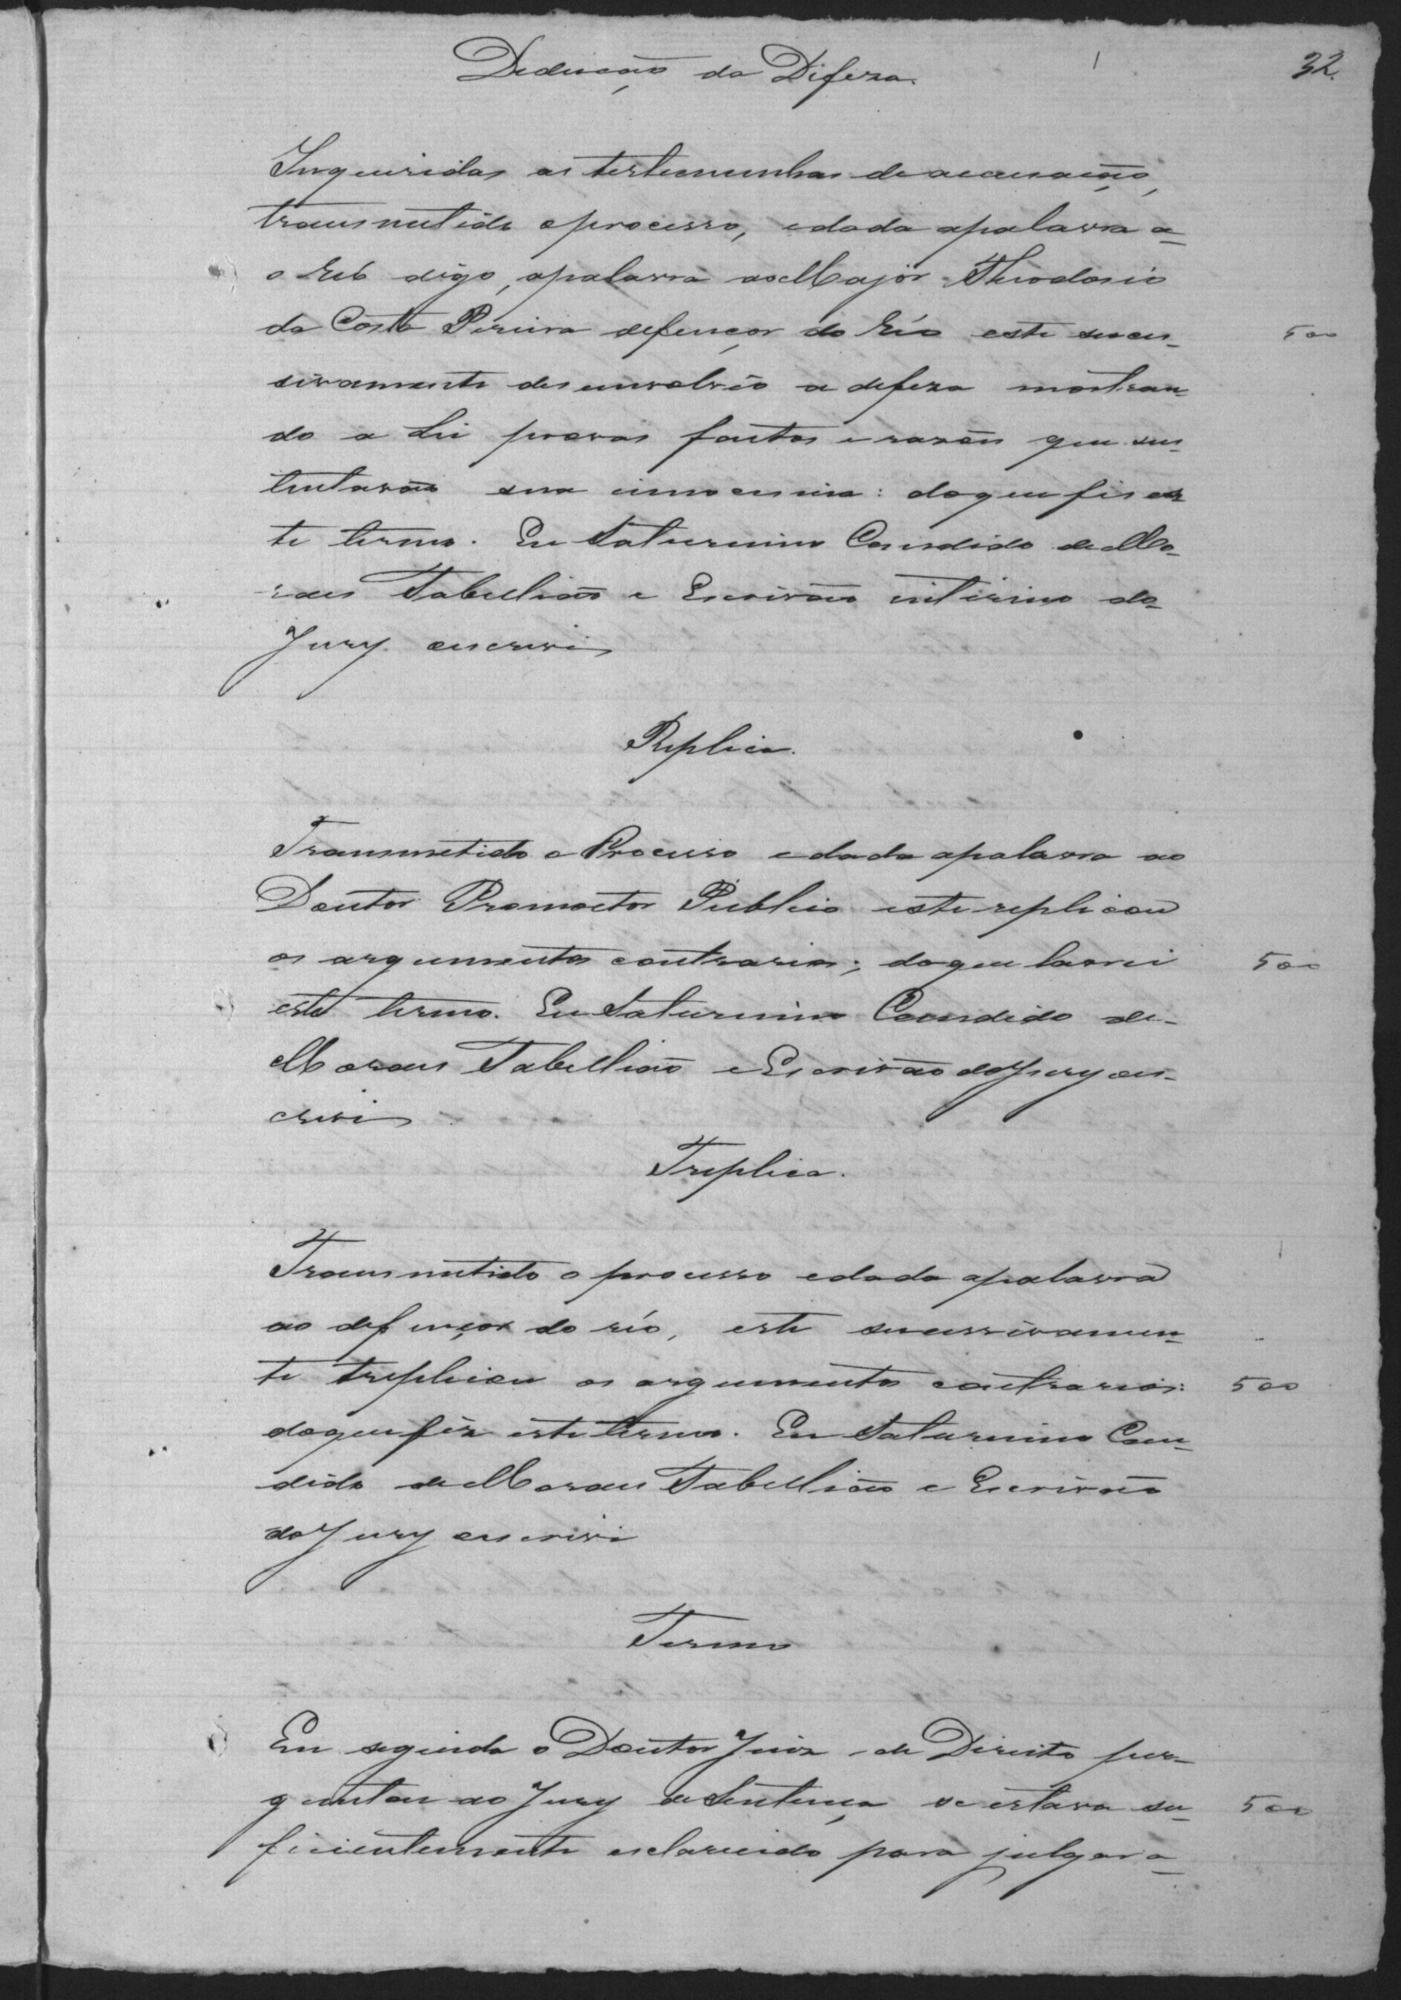 Deducção da Difeza.
32.
Inqueridas as testemunhas de accusação,
transmetido o processo, e dada a palavra a-
o Réo digo, a palavra ao Major Theodosio
da Costa Pereira defençor do Réo este succes- 500
sivamente desenvolvêo a defeza mostran-
do a Lei provas factos e razões que sus-
tentavão sua innocencia: do que fis es-
te termo. Eu Saturnino Candido de Mo-
raes Tabellião e Escrivão interino do
Jury escrevi
Replica.
Transmetido o Processo e dada a palavra ao
Doutor Promoctor Publico este replicou
os argumentos contrarios; do que lavrei 500
este termo. Eu Saturnino Candido de-
Moraes Tabellião e Escrivão do Jury es-
crevi
Treplica.
Transmetido o processo e dada a palavra
ao defençor do réo, este successivamen-
te treplicou os argumentos contrarios: 500
do que fiz este termo. Eu Saturnino Can-
dido de Moraes Tabellião e Escrivão
do Jury escrevi
Termo
Em seguida o Doutor Juiz de Direito per-
guntou ao Jury de Sentença se estava su- 500
ficientemente esclarecido para julgar a-